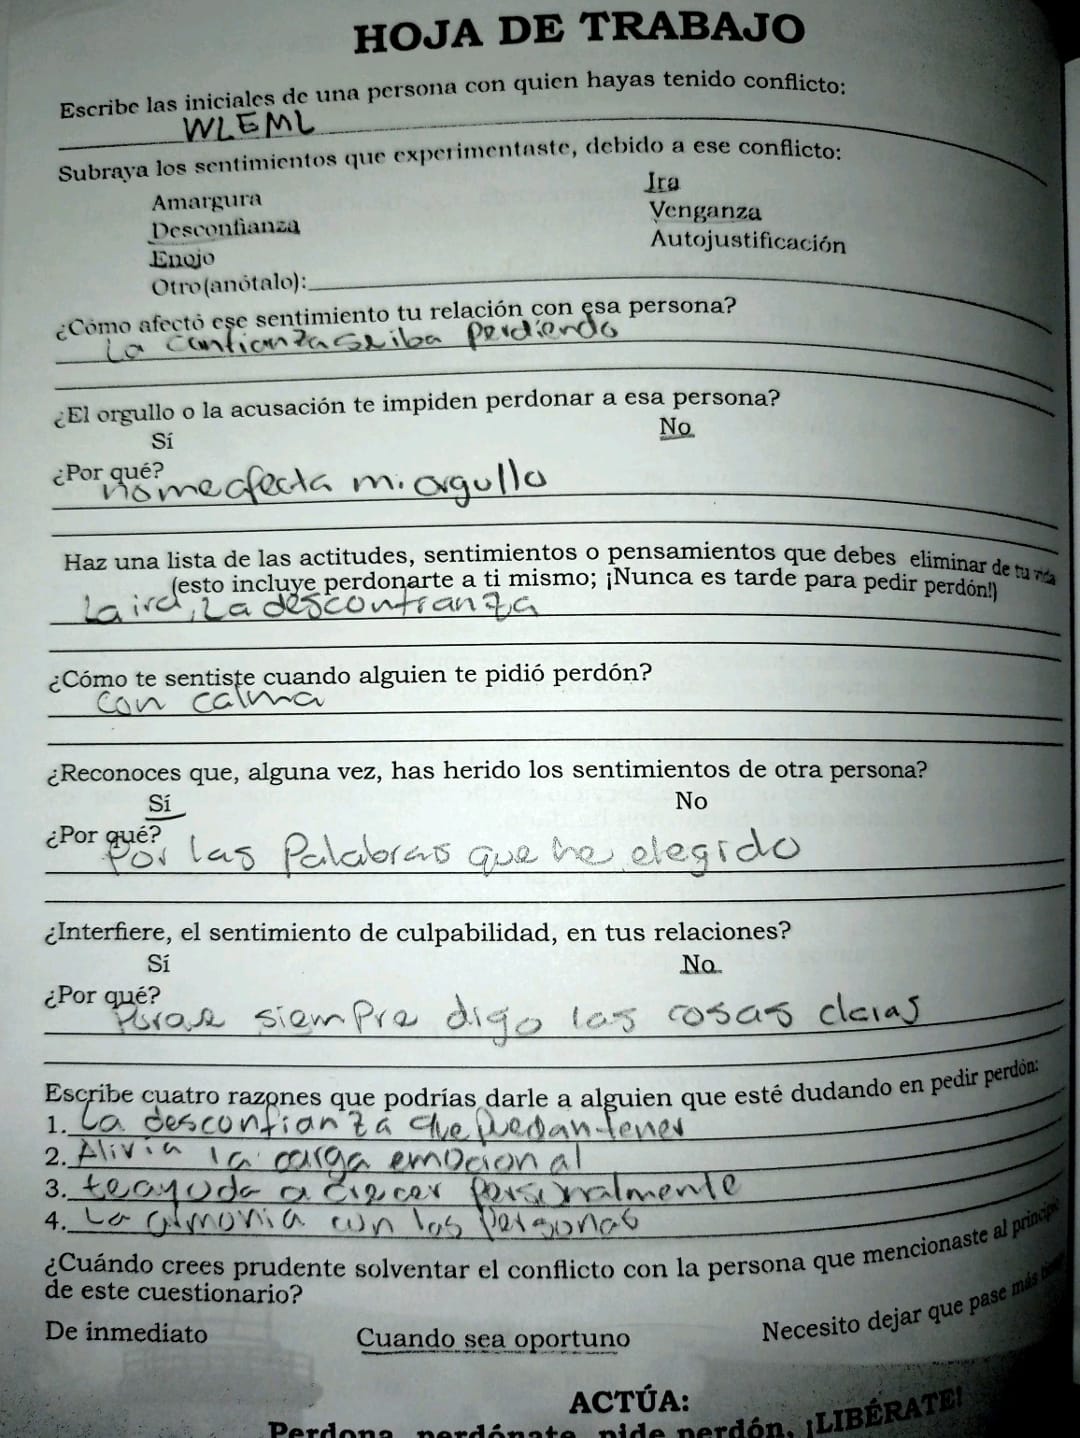 HOJA DE TRABAJO
Escribe las iniciales de una persona con quien hayas tenido conflicto:
WLEML
Subraya los sentimientos que experimentaste, debido a ese conflicto:
Amargura Ira
Desconfianza Venganza
Enojo Autojustificación
Otro(anótalo):
¿Cómo afectó ese sentimiento tu relación con esa persona?
La confianza se iba perdiendo
¿El orgullo o la acusación te impiden perdonar a esa persona?
Sí No
¿Por qué?
no me afecta mi orgullo
Haz una lista de las actitudes, sentimientos o pensamientos que debes eliminar de tu vida
(esto incluye perdonarte a ti mismo; ¡Nunca es tarde para pedir perdón!)
La ira, La desconfianza
¿Cómo te sentiste cuando alguien te pidió perdón?
con calma
¿Reconoces que, alguna vez, has herido los sentimientos de otra persona?
Sí No
¿Por qué?
Por las Palabras que he elegido
¿Interfiere, el sentimiento de culpabilidad, en tus relaciones?
Sí No
¿Por qué?
siempre digo las cosas claras
Escribe cuatro razones que podrías darle a alguien que esté dudando en pedir perdón:
1. La desconfianza que puedan tener
2. Alivia la carga emocional
3. te ayuda a crecer personalmente
4. La con las Personas
¿Cuándo crees prudente solventar el conflicto con la persona que mencionaste al principio
de este cuestionario?
De inmediato Cuando sea oportuno Necesito dejar que pase más
ACTÚA:
Perdona, perdónate, pide perdón, ¡LIBÉRATE!